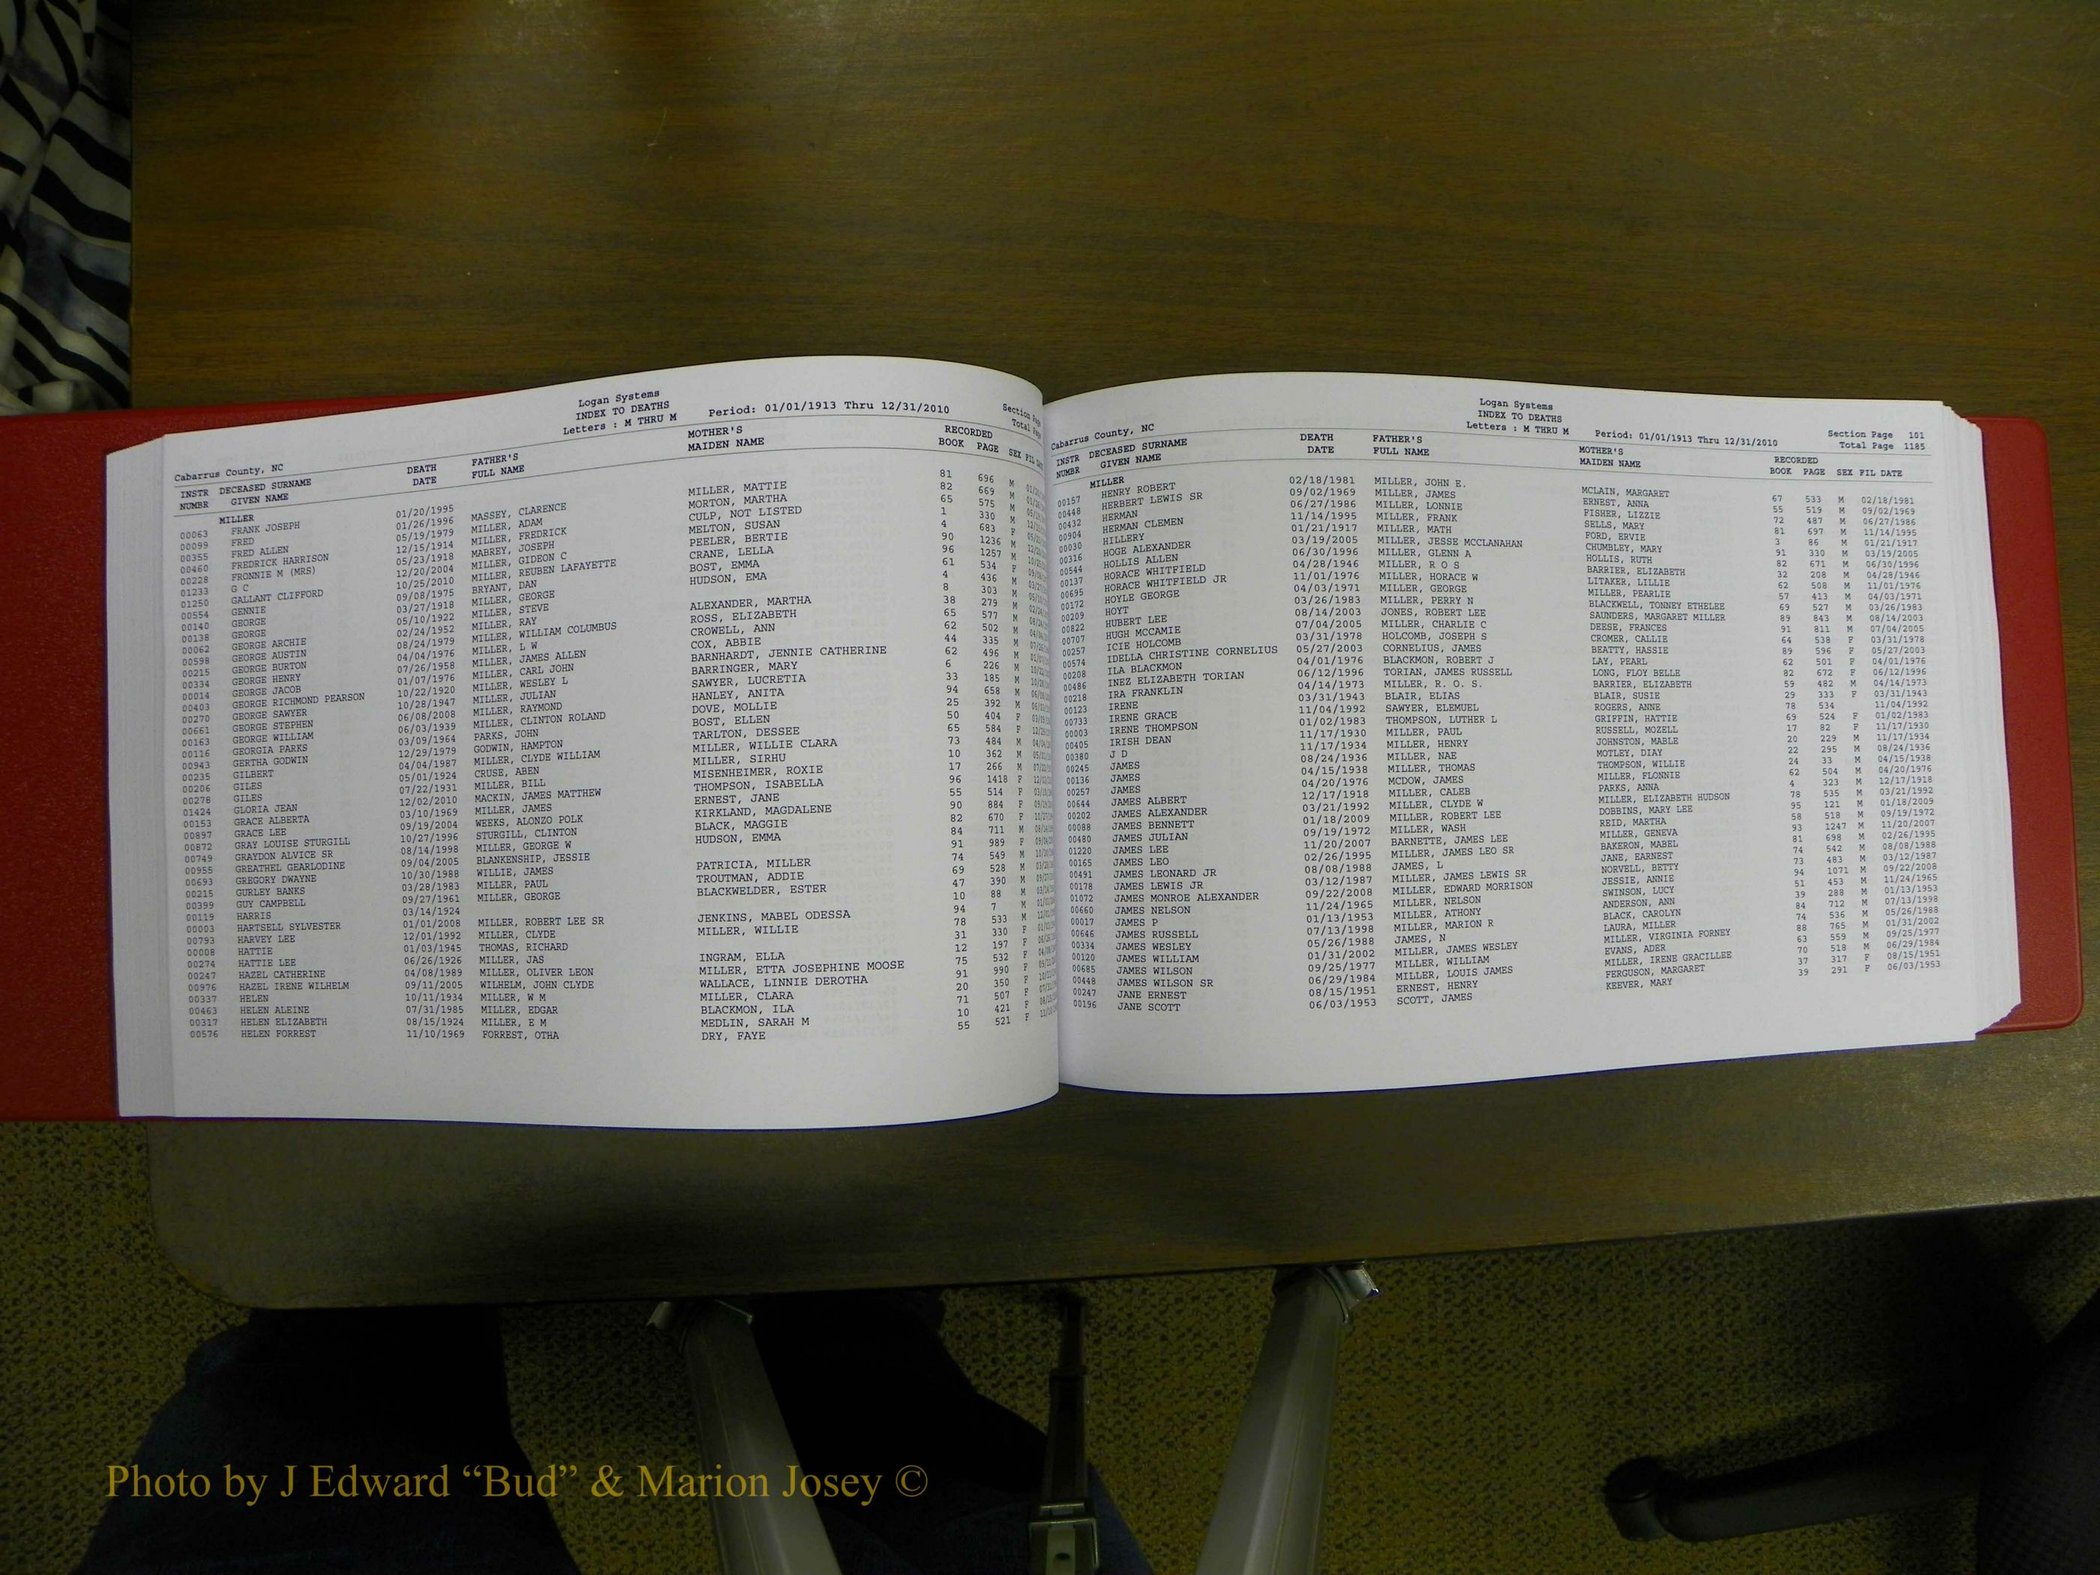 Logan Systems
INDEX TO DEATHS
Letters : M THRU M Period: 01/01/1913 Thru 12/31/2010
Section Page
Total Page
Cabarrus County, NC
INSTR DECEASED SURNAME DEATH FATHER'S MOTHER'S RECORDED
NUMBR GIVEN NAME DATE FULL NAME MAIDEN NAME BOOK PAGE SEX FIL DATE
MILLER
00063 FRANK JOSEPH 01/20/1995 81 696 M
00099 FRED 01/26/1996 MASSEY, CLARENCE MILLER, MATTIE 82 669 M
00355 FRED ALLEN 05/19/1979 MILLER, ADAM MORTON, MARTHA 65 575 M
00460 FREDRICK HARRISON 12/15/1914 MILLER, FREDRICK CULP, NOT LISTED 1 330 M
00228 FRONNIE M (MRS) 05/23/1918 MABREY, JOSEPH MELTON, SUSAN 4 683 F
01233 G C 12/20/2004 MILLER, GIDEON C PEELER, BERTIE 90 1236 M
01250 GALLANT CLIFFORD 10/25/2010 MILLER, REUBEN LAFAYETTE CRANE, LELLA 96 1257 M
00554 GENNIE 09/08/1975 BRYANT, DAN BOST, EMMA 61 534 F
00140 GEORGE 03/27/1918 MILLER, GEORGE HUDSON, EMA 4 436 M
00138 GEORGE 05/10/1922 MILLER, STEVE 8 303 M
00062 GEORGE ARCHIE 02/24/1952 MILLER, RAY ALEXANDER, MARTHA 38 279 M
00598 GEORGE AUSTIN 08/24/1979 MILLER, WILLIAM COLUMBUS ROSS, ELIZABETH 65 577 M
00215 GEORGE BURTON 04/04/1976 MILLER, L W CROWELL, ANN 62 502 M
00334 GEORGE HENRY 07/26/1958 MILLER, JAMES ALLEN COX, ABBIE 44 335 M
00014 GEORGE JACOB 01/07/1976 MILLER, CARL JOHN BARNHARDT, JENNIE CATHERINE 62 496 M
00403 GEORGE RICHMOND PEARSON 10/22/1920 MILLER, WESLEY L BARRINGER, MARY 6 226 M
00270 GEORGE SAWYER 10/28/1947 MILLER, JULIAN SAWYER, LUCRETIA 33 185 M
00661 GEORGE STEPHEN 06/08/2008 MILLER, RAYMOND HANLEY, ANITA 94 658 M
00163 GEORGE WILLIAM 06/03/1939 MILLER, CLINTON ROLAND DOVE, MOLLIE 25 392 M
00116 GEORGIA PARKS 03/09/1964 PARKS, JOHN BOST, ELLEN 50 404 F
00943 GERTHA GODWIN 12/29/1979 GODWIN, HAMPTON TARLTON, DESSEE 65 584 F
00235 GILBERT 04/04/1987 MILLER, CLYDE WILLIAM MILLER, WILLIE CLARA 73 484 M
00206 GILES 05/01/1924 CRUSE, ABEN MILLER, SIRHU 10 362 M
00278 GILES 07/22/1931 MILLER, BILL MISENHEIMER, ROXIE 17 266 M
01424 GLORIA JEAN 12/02/2010 MACKIN, JAMES MATTHEW THOMPSON, ISABELLA 96 1418 F
00153 GRACE ALBERTA 03/10/1969 MILLER, JAMES ERNEST, JANE 55 514 F
00897 GRACE LEE 09/19/2004 WEEKS, ALONZO POLK KIRKLAND, MAGDALENE 90 884 F
00872 GRAY LOUISE STURGILL 10/27/1996 STURGILL, CLINTON BLACK, MAGGIE 82 670 F
00749 GRAYDON ALVICE SR 08/14/1998 MILLER, GEORGE W HUDSON, EMMA 84 711 M
00955 GREATHEL GEARLODINE 09/04/2005 BLANKENSHIP, JESSIE 91 989 F
00693 GREGORY DWAYNE 10/30/1988 WILLIE, JAMES PATRICIA, MILLER 74 549 M
00215 GURLEY BANKS 03/28/1983 MILLER, PAUL TROUTMAN, ADDIE 69 528 M
00399 GUY CAMPBELL 09/27/1961 MILLER, GEORGE BLACKWELDER, ESTER 47 390 M
00119 HARRIS 03/14/1924 10 88 M
00003 HARTSELL SYLVESTER 01/01/2008 MILLER, ROBERT LEE SR JENKINS, MABEL ODESSA 94 7 M
00793 HARVEY LEE 12/01/1992 MILLER, CLYDE MILLER, WILLIE 78 533 M
00008 HATTIE 01/03/1945 THOMAS, RICHARD 31 330 F
00274 HATTIE LEE 06/26/1926 MILLER, JAS INGRAM, ELLA 12 197 F
00247 HAZEL CATHERINE 04/08/1989 MILLER, OLIVER LEON MILLER, ETTA JOSEPHINE MOOSE 75 532 F
00976 HAZEL IRENE WILHELM 09/11/2005 WILHELM, JOHN CLYDE WALLACE, LINNIE DEROTHA 91 990 F
00337 HELEN 10/11/1934 MILLER, W M MILLER, CLARA 20 350 F
00463 HELEN ALEINE 07/31/1985 MILLER, EDGAR BLACKMON, ILA 71 507 F
00317 HELEN ELIZABETH 08/15/1924 MILLER, E M MEDLIN, SARAH M 10 421 F
00576 HELEN FORREST 11/10/1969 FORREST, OTHA DRY, FAYE 55 521 F
Logan Systems
INDEX TO DEATHS
Letters : M THRU M Period: 01/01/1913 Thru 12/31/2010
Section Page 101
Total Page 1185
Cabarrus County, NC
INSTR DECEASED SURNAME DEATH FATHER'S MOTHER'S RECORDED
NUMBR GIVEN NAME DATE FULL NAME MAIDEN NAME BOOK PAGE SEX FIL DATE
MILLER
00157 HENRY ROBERT 02/18/1981 MILLER, JOHN E. MCLAIN, MARGARET 67 533 M 02/18/1981
00448 HERBERT LEWIS SR 09/02/1969 MILLER, JAMES ERNEST, ANNA 55 519 M 09/02/1969
00432 HERMAN 06/27/1986 MILLER, LONNIE FISHER, LIZZIE 72 487 M 06/27/1986
00904 HERMAN CLEMEN 11/14/1995 MILLER, FRANK SELLS, MARY 81 697 M 11/14/1995
00030 HILLERY 01/21/1917 MILLER, MATH FORD, ERVIE 3 86 M 01/21/1917
00316 HOGE ALEXANDER 03/19/2005 MILLER, JESSE MCCLANAHAN CHUMBLEY, MARY 91 330 M 03/19/2005
00544 HOLLIS ALLEN 06/30/1996 MILLER, GLENN A HOLLIS, RUTH 82 671 M 06/30/1996
00137 HORACE WHITFIELD 04/28/1946 MILLER, R O S BARRIER, ELIZABETH 32 208 M 04/28/1946
00695 HORACE WHITFIELD JR 11/01/1976 MILLER, HORACE W LITAKER, LILLIE 62 508 M 11/01/1976
00172 HOYLE GEORGE 04/03/1971 MILLER, GEORGE MILLER, PEARLIE 57 413 M 04/03/1971
00209 HOYT 03/26/1983 MILLER, PERRY N BLACKWELL, TONNEY ETHELEE 69 527 M 03/26/1983
00822 HUBERT LEE 08/14/2003 JONES, ROBERT LEE SAUNDERS, MARGARET MILLER 89 843 M 08/14/2003
00707 HUGH MCCAMIE 07/04/2005 MILLER, CHARLIE C DEESE, FRANCES 91 811 M 07/04/2005
00257 ICIE HOLCOMB 03/31/1978 HOLCOMB, JOSEPH S CROMER, CALLIE 64 538 F 03/31/1978
00574 IDELLA CHRISTINE CORNELIUS 05/27/2003 CORNELIUS, JAMES BEATTY, HASSIE 89 596 F 05/27/2003
00208 ILA BLACKMON 04/01/1976 BLACKMON, ROBERT J LAY, PEARL 62 501 F 04/01/1976
00486 INEZ ELIZABETH TORIAN 06/12/1996 TORIAN, JAMES RUSSELL LONG, FLOY BELLE 82 672 F 06/12/1996
00218 IRA FRANKLIN 04/14/1973 MILLER, R. O. S. BARRIER, ELIZABETH 59 482 M 04/14/1973
00123 IRENE 03/31/1943 BLAIR, ELIAS BLAIR, SUSIE 29 333 F 03/31/1943
00733 IRENE GRACE 11/04/1992 SAWYER, ELEMUEL ROGERS, ANNE 78 534 11/04/1992
00003 IRENE THOMPSON 01/02/1983 THOMPSON, LUTHER L GRIFFIN, HATTIE 69 524 F 01/02/1983
00405 IRISH DEAN 11/17/1930 MILLER, PAUL RUSSELL, MOZELL 17 82 F 11/17/1930
00380 J D 11/17/1934 MILLER, HENRY JOHNSTON, MABLE 20 229 M 11/17/1934
00245 JAMES 08/24/1936 MILLER, NAE MOTLEY, DIAY 22 295 M 08/24/1936
00136 JAMES 04/15/1938 MILLER, THOMAS THOMPSON, WILLIE 24 33 M 04/15/1938
00257 JAMES 04/20/1976 MCDOW, JAMES MILLER, FLONNIE 62 504 M 04/20/1976
00644 JAMES ALBERT 12/17/1918 MILLER, CALEB PARKS, ANNA 4 323 M 12/17/1918
00202 JAMES ALEXANDER 03/21/1992 MILLER, CLYDE W MILLER, ELIZABETH HUDSON 78 535 M 03/21/1992
00088 JAMES BENNETT 01/18/2009 MILLER, ROBERT LEE DOBBINS, MARY LEE 95 121 M 01/18/2009
00480 JAMES JULIAN 09/19/1972 MILLER, WASH REID, MARTHA 58 518 M 09/19/1972
01220 JAMES LEE 11/20/2007 BARNETTE, JAMES LEE MILLER, GENEVA 93 1247 M 11/20/2007
00165 JAMES LEO 02/26/1995 MILLER, JAMES LEO SR BAKERON, MABEL 81 698 M 02/26/1995
00491 JAMES LEONARD JR 08/08/1988 JAMES, L JANE, EARNEST 74 542 M 08/08/1988
00178 JAMES LEWIS JR 03/12/1987 MILLER, JAMES LEWIS SR NORVELL, BETTY 73 483 M 03/12/1987
01072 JAMES MONROE ALEXANDER 09/22/2008 MILLER, EDWARD MORRISON JESSIE, ANNIE 94 1071 M 09/22/2008
00660 JAMES NELSON 11/24/1965 MILLER, NELSON SWINSON, LUCY 51 453 M 11/24/1965
00017 JAMES P 01/13/1953 MILLER, ATHONY ANDERSON, ANN 39 288 M 01/13/1953
00646 JAMES RUSSELL 07/13/1998 MILLER, MARION R BLACK, CAROLYN 84 712 M 07/13/1998
00334 JAMES WESLEY 05/26/1988 JAMES, N LAURA, MILLER 74 536 M 05/26/1988
00120 JAMES WILLIAM 01/31/2002 MILLER, JAMES WESLEY MILLER, VIRGINIA FORNEY 88 765 M 01/31/2002
00685 JAMES WILSON 09/25/1977 MILLER, WILLIAM EVANS, ADER 63 559 M 09/25/1977
00448 JAMES WILSON SR 06/29/1984 MILLER, LOUIS JAMES MILLER, IRENE GRACILLEE 70 518 M 06/29/1984
00247 JANE ERNEST 08/15/1951 ERNEST, HENRY FERGUSON, MARGARET 37 317 F 08/15/1951
00196 JANE SCOTT 06/03/1953 SCOTT, JAMES KEEVER, MARY 39 291 F 06/03/1953
Photo by J Edward “Bud” & Marion Josey ©